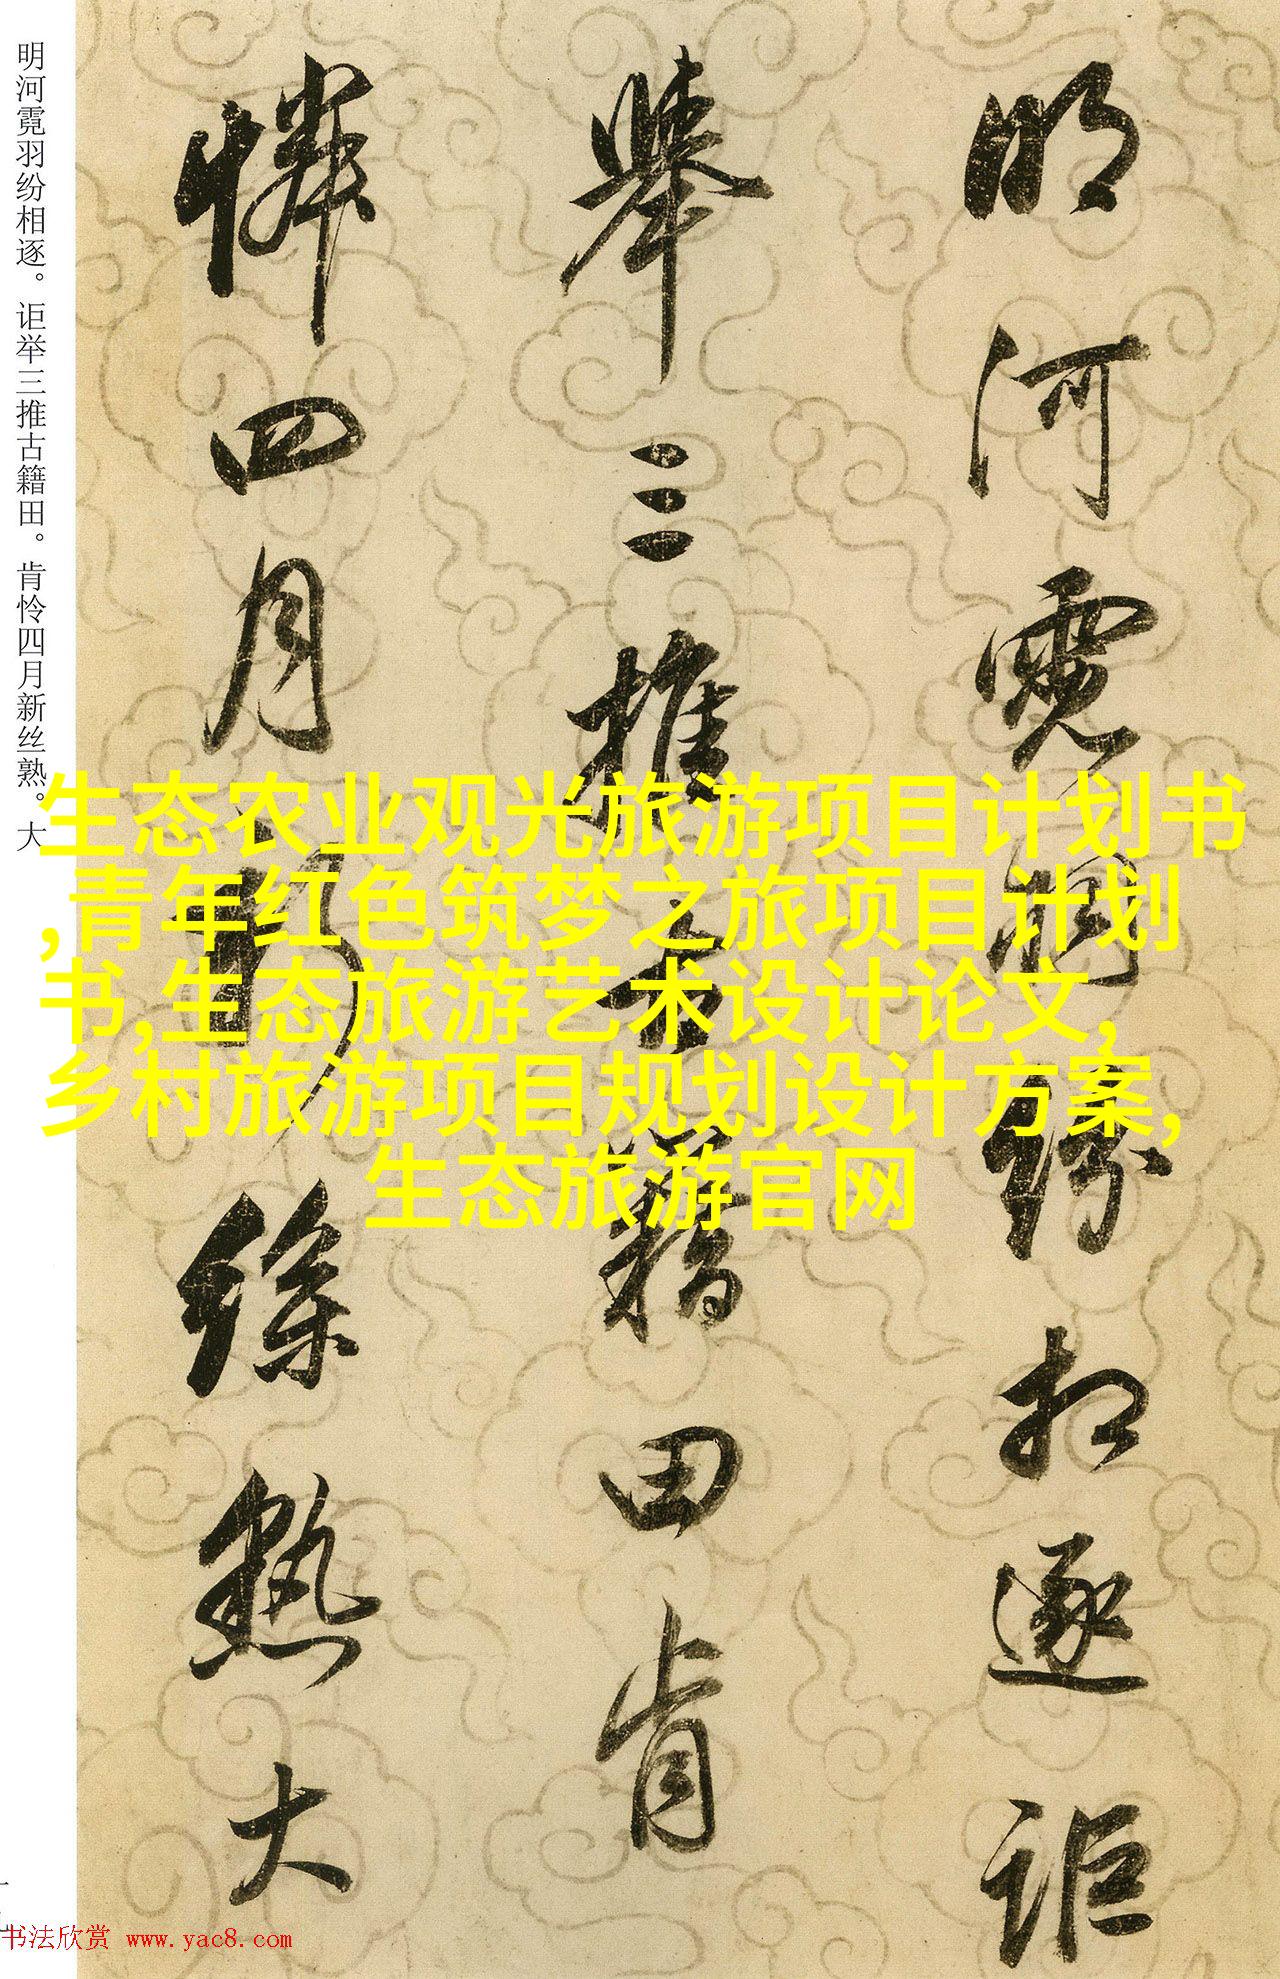 明河霓羽纷相逐。讵举三推古籍田。肯怜四月新丝熟。大
明河霓羽纷相逐讵
举三推古籍田肯
怜四月新丝熟大
生态农业观光旅游项目计划书
,青年红色筑梦之旅项目计划
书,生态旅游艺术设计论文,
乡村旅游项目规划设计方案,
生态旅游官网
书法欣赏 www.yac8.com